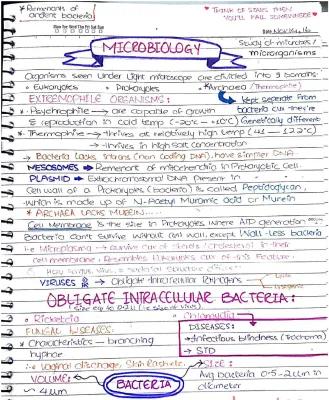 * Remenants of
ancient bacteria
♥ THINK OF STARS THEN
YOU'LL FALL SOMEWHERE ♥
MICROBIOLOGY
Study of microbes /
microrganisms
Organisms seen under light microscope are divided into 3 domains.
• Eukaryotes • Prokaryotes • Archaea (Thermophile)
EXTREMOPHILE ORGANISMS:
Kept seperate from
bacteria cuz they're
Genetically different
* Psychrophile → are capable of growth
& reproduction in cold temp (-20°C – +10°C)
* Thermophile → thrives at relatively high temp (41 – 122°C)
→ thrives in high salt concentration
→ Bacteria lacks introns (non coding DNA), have simpler DNA
MESOSOMES → Remenant of mitochondria in Prokaryotic Cell.
PLASMID → Extrachromosomal DNA present in
Cell wall of a Prokaryotes (bacteria) is called Peptidoglycan,
which is made up of N-Acetyl Muramic acid or Murein
* ARCHAEA LACKS MUREIN....
Cell Membrane is the site in Prokaryotes where ATP generation
Bacteria can't survive without cell wall, except Wall-less bacteria
i.e Microplasma → survive cuz of sterols (cholesterol) in their
cell membrane, Resembles
VIRUSES → Obligate Intracellular Pathogens
OBLIGATE INTRACELLULAR BACTERIA:
• Ricketsia • Chlamydia
FUNGAL DISEASES:
DISEASES:
* Characteristics – branching
hyphae
→ Infectious blindness (Trachoma)
→ STD
∴ Vaginal discharge, Skin Rashes
SIZE:
VOLUME:
~ 4µm
BACTERIA
Avg bacteria 0.5-2µm in
diameter